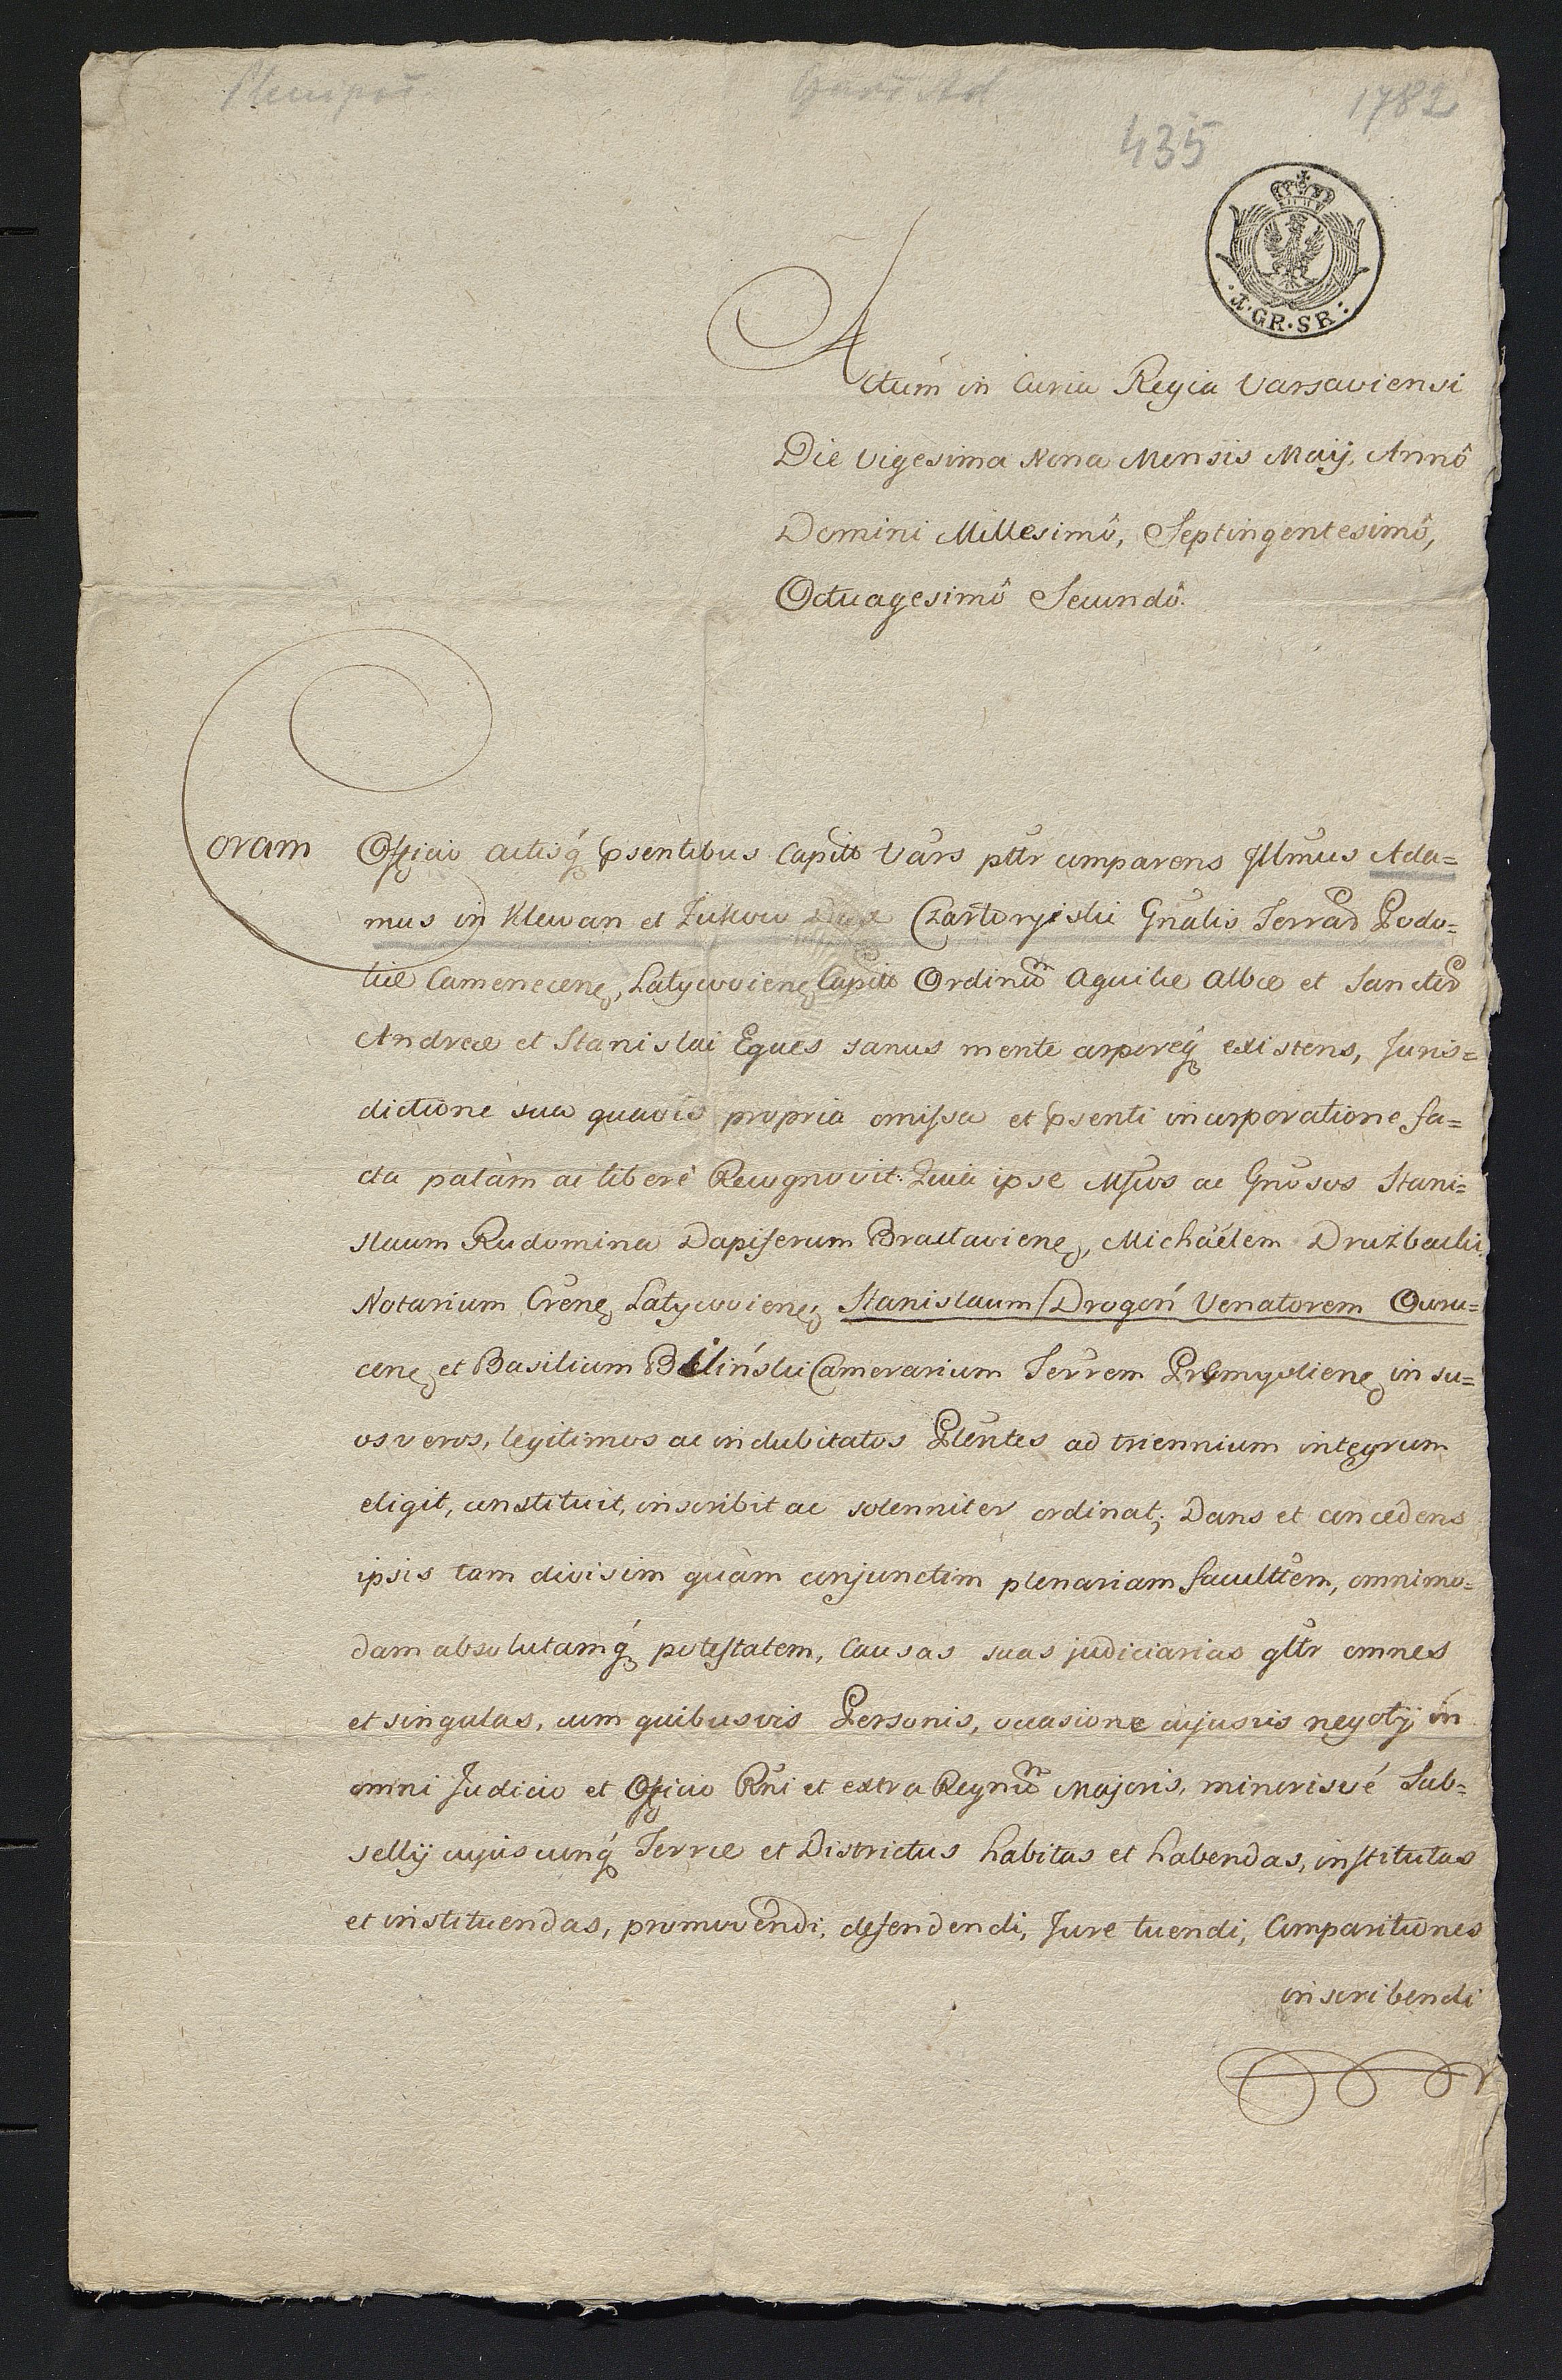 Plenipot.
Czart Ad
1782
435
I·GR·SR:
Actum in Curia Regia Varsaviensi
Die Vigesima Nona Mensis Maij, Annô
Domini Millesimô, Septingentesimô,
Octuagesimô Secundô.
Coram Officio Actisq́ psentibus Capitt Vars pttr comparens Jllmus Ada=
mus in Klewan et Żukow Dux Czartoryiski Gnalis Terrar Podo=
liæ Camenecenę, Latyczovienę Capitt Ordinum Aquilæ Albæ et Sancter
Andreæ et Stanislai Eques sanus mente corporeq́ existens, Juris=
dictione sua quavis propria omissa et psenti incorporatione fa=
cta palàm ac liberè Recognovit: Quia ipse Mfcos ac Gnrosos Stani=
slaum Rudomina Dapiferum Braclavienę, Michaëlem Drużbacki
Notarium Crenę Latyczovienę, Stanislaum Drogoń Venatorem Owru=
cenę, et Basilium Biliński Camerarium Terrem Premyslienę in su=
os veros, legitimos ac indubitatos Plentes ad triennium integrum
eligit, constituit, inscribit ac solenniter ordinat; Dans et concedens
ipsis tam divisim quàm conjunctim plenariam facultem, omnimo=
dam absolutamq́ potestatem, Causas suas judiciarias gttr omnes
et singulas, cum quibusvis Personis, occasione cujusvis negotij in
omni Judicio et Officio Rni et extra Regnum Majoris, minorisvé Sub=
sellij cujuscunq́ Terræ et Districtus habitas et habendas, institutas
et instituendas, promovendi, defendendi, Jure tuendi, Comparitiones
inscribendi